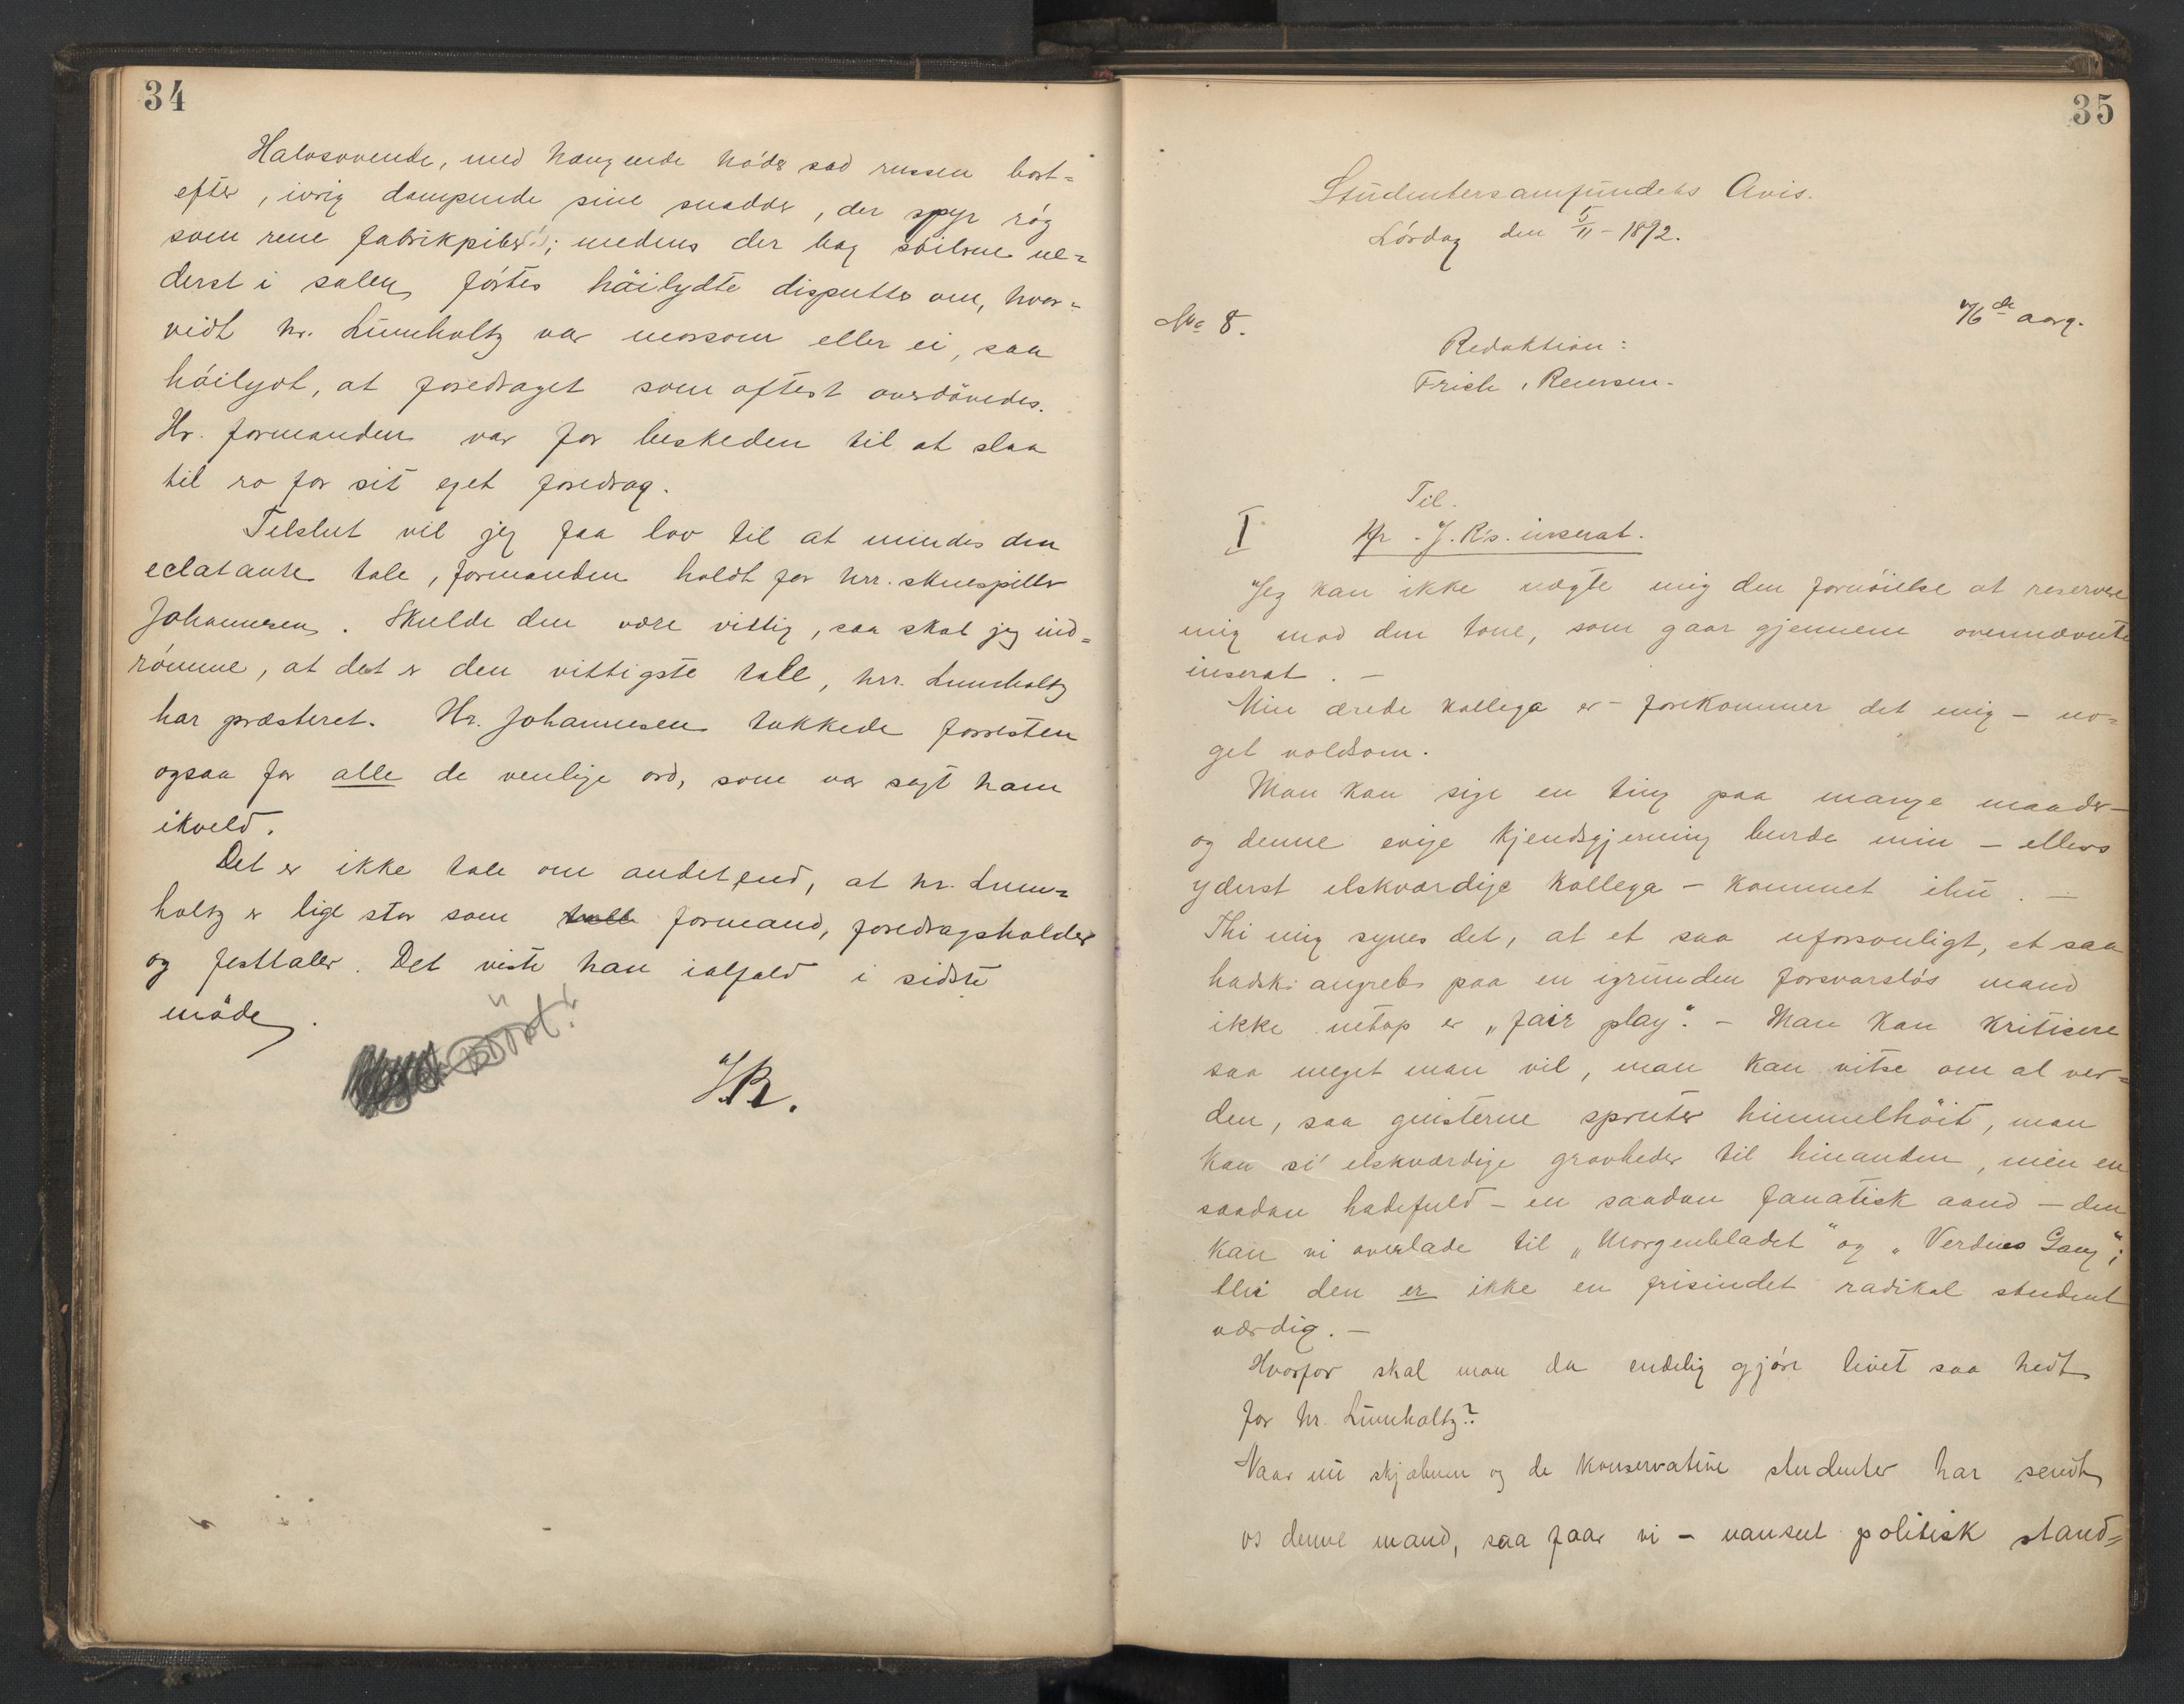 34
Halvsovende, med hængende høder sad russen bort=
efter, ivrig dampende sine snadder, der spyr røg
som rene fabrikpiber(!); medens der bag søilerne ne=
derst i salen førtes høilydte disputter om, hvor=
vidt hr. Lumholtz var morsom eller ei, saa
høilydt, at foredraget som oftest overdøvedes.
Hr. formanden var for beskeden til at slaa
til ro for sit eget foredrag.
Tilslut vil jeg faa lov til at mindes den
eclatante tale, formanden holdt for hrr. skuespiller
Johannesen. Skulde den være vittig, saa skal jeg ind=
rømme, at det er den vittigste tale, hrr. Lumholtz
har præsteret. Hr. Johannesen takkede forresten
ogsaa for alle de venlige ord, som var sagt ham
ikveld.
Det er ikke tale om andet end, at hr. Lum=
holtz er lige stor som formand, foredragsholder
og festtaler. Det viste han ialfald i sidste
møde.
J.R.
35
Studentersamfundets Avis.
Lørdag den 5/11 - 1892.
No 8.
6de aarg.
Redaktion:
Frich, Reuersen.
Til
I Hr. J. R's. inserat.
Jeg kan ikke nægte mig den fornøielse at reservere
mig mod den tone, som gaar gjennem ovennævnte
inserat. —
Min ærede kollega er – forekommer det mig – no=
get voldsom.
Man kan sige en ting paa mange maader –
og denne evige kjendsgjerning burde min – ellers
yderst elskværdige kollega – kommet ihu. —
Thi mig synes det, at et saa uforsonligt, et saa
hadsk angreb paa en igrunden forsvarsløs mand
ikke netop er „fair play". – Man kan kritisere
saa meget man vil, man kan vitse om al ver=
den, saa gnisterne spruter himmelhøit, man
kan si' elskværdige grovheder til hinanden, men en
saadan hadefuld – en saadan fanatisk aand – den
kan vi overlade til „Morgenbladet" og „Verdens Gang";
thi den er ikke en frisindet radikal student
værdig. —
Hvorfor skal man da endelig gjøre livet saa hedt
for hr. Lumholtz?
Naar nu skjæbnen og de konservative studenter har sendt
os denne mand, saa faar vi – uanseet politisk stand=